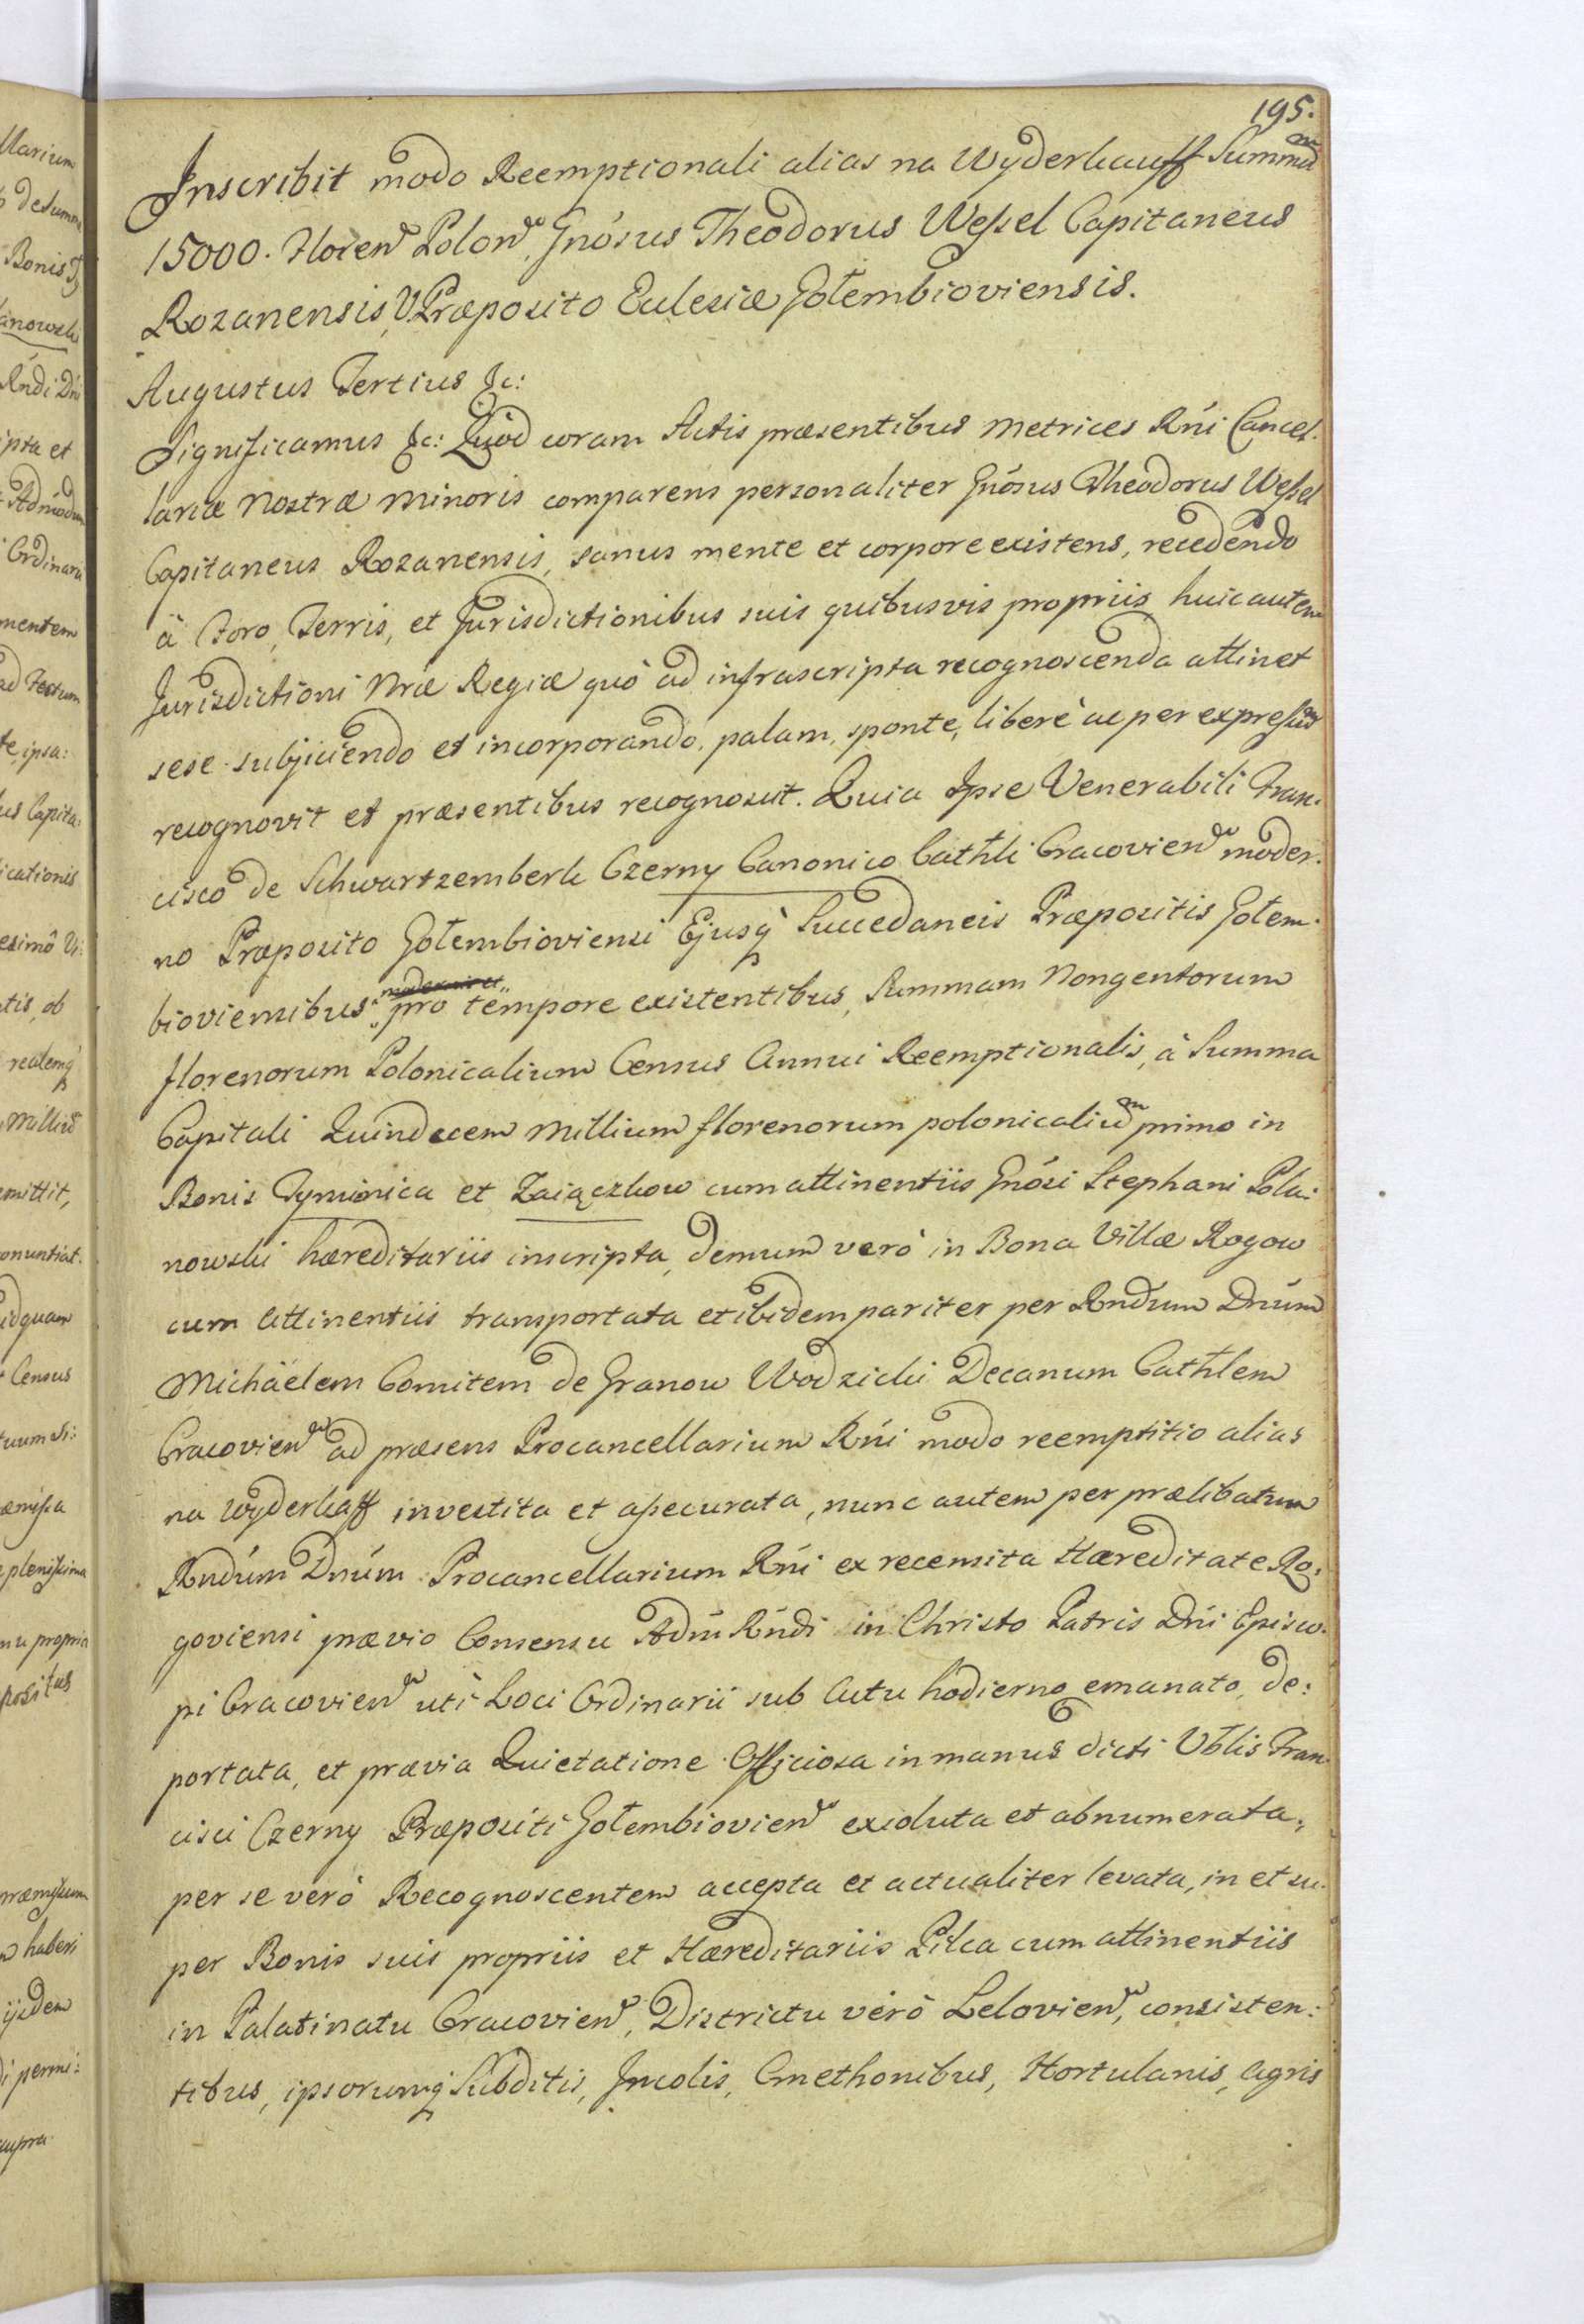 195.
Inscribit modo Reemptionali alias na Wyderkauff Summã
15000. Floren Polon, Gnósus Theodorus Wessel Capitaneus
Rozanensis, V. Præposito Eclesiæ Gołembioviensis.
Augustus Tertius &c:
Significamus &c: Quòd coram Actis præsentibus Metrices Rńi Cancel-
lariæ Nostræ Minoris comparens personaliter Gnósus Theodorus Wessel
Capitaneus Rozanensis, sanus mente et corpore existens, recedendo
à Foro, Terris, et Jurisdictionibus suis quibusvis propriis, huic autem
Jurisdictioni Nræ Regiæ quò ad infrascripta recognoscenda attinet
sese subjiciendo et incorporando, palam, sponte, liberè ac per expressũ
recognovit et præsentibus recognoscit. Quia Ipse Venerabili Fran:
cisco de Schwartzemberk Czerny Canonico Cathłi Cracovien moder:
no Præposito Gołembioviensi Ejusq́ Succedaneis Præpositis Gołem:
bioviensibus pro tempore existentibus, Summam Nongentorum
florenorum Polonicalium Census Annui Reemptionalis, à Summa
Capitali Quindecem Millium florenorum polonicaliũ primo in
Bonis Tyminica et Zaiączkow cum attinentiis Gnósi Stephani Pola:
nowski hæreditariis inscripta, demum verò in Bona Villæ Rogow
cum Attinentiis transportata et ibidem pariter per Rndum Dnúm
Michäelem Comitem de Granow Wodzicki Decanum Cathlem
Cracovien ad præsens Procancellarium Rńi modo reemptitio alias
na Wyderkaff investita et assecurata, nunc autem per prælibatum
Rndúm Dnúm Procancellarium Rńi ex recensita Hæreditate Ro:
goviensi prævio Consensu Adḿ Rńdi in Christo Patris Dńi Episco-
pi Cracovien uti Loci Ordinarii sub Actu hodierno emanato, de:
portata, et prævia Quietatione Officiosa in manus dicti Vblis Fran-
cisci Czerny Præpositi Gołembiovien exoluta et abnumerata,
per se verò Recognoscentem accepta et actualiter levata, in et su-
per Bonis suis propriis et Hæreditariis Pilca cum attinentiis
in Palatinatu Cracovien, Districtu verò Lelovien, consisten:
tibus, ipsorumq́ Subditis, Incolis, Cmethonibus, Hortulanis, Agris